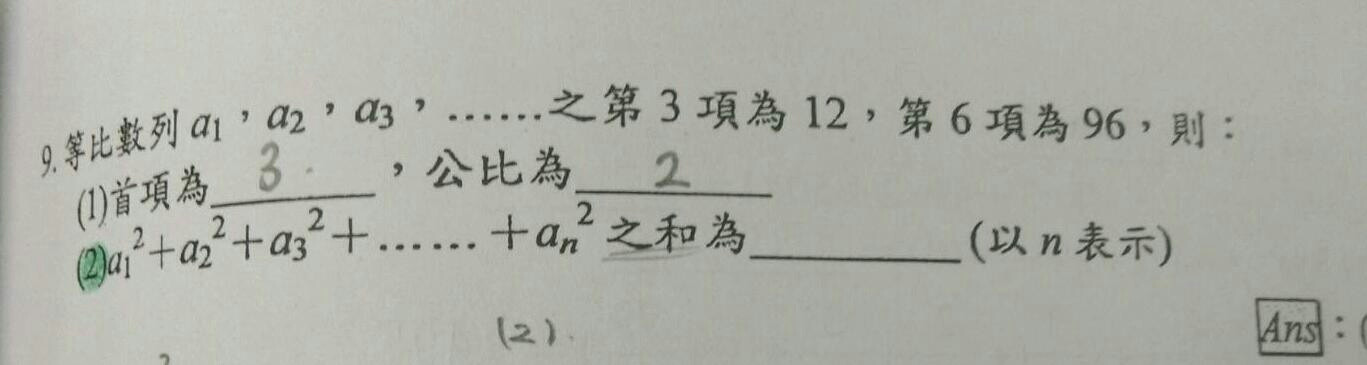 9.等比數列 a₁，a₂，a₃，……之第 3 項為 12，第 6 項為 96，則：
(1)首項為 3 ，公比為 2
(2)a₁²+a₂²+a₃²+……+aₙ² 之和為________(以 n 表示)
(2).
Ans：(